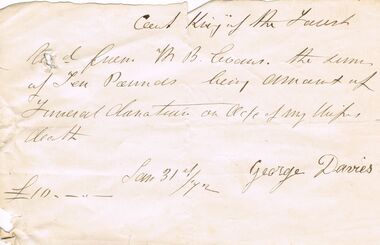 Court King of the Forest
Rec'd from Mr B. Evans. the sum
of Ten Pounds being amount of
Funeral donation on of my Wifes
death
Jan 31st/72 George Davies
£10 - " -